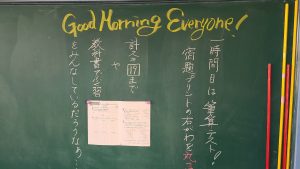 Good Morning Everyone!
一時間目は算テスト!
宿題プリントの右がわを
計久の まで
や
教科書で学習
をみんなしているだろうなあ…